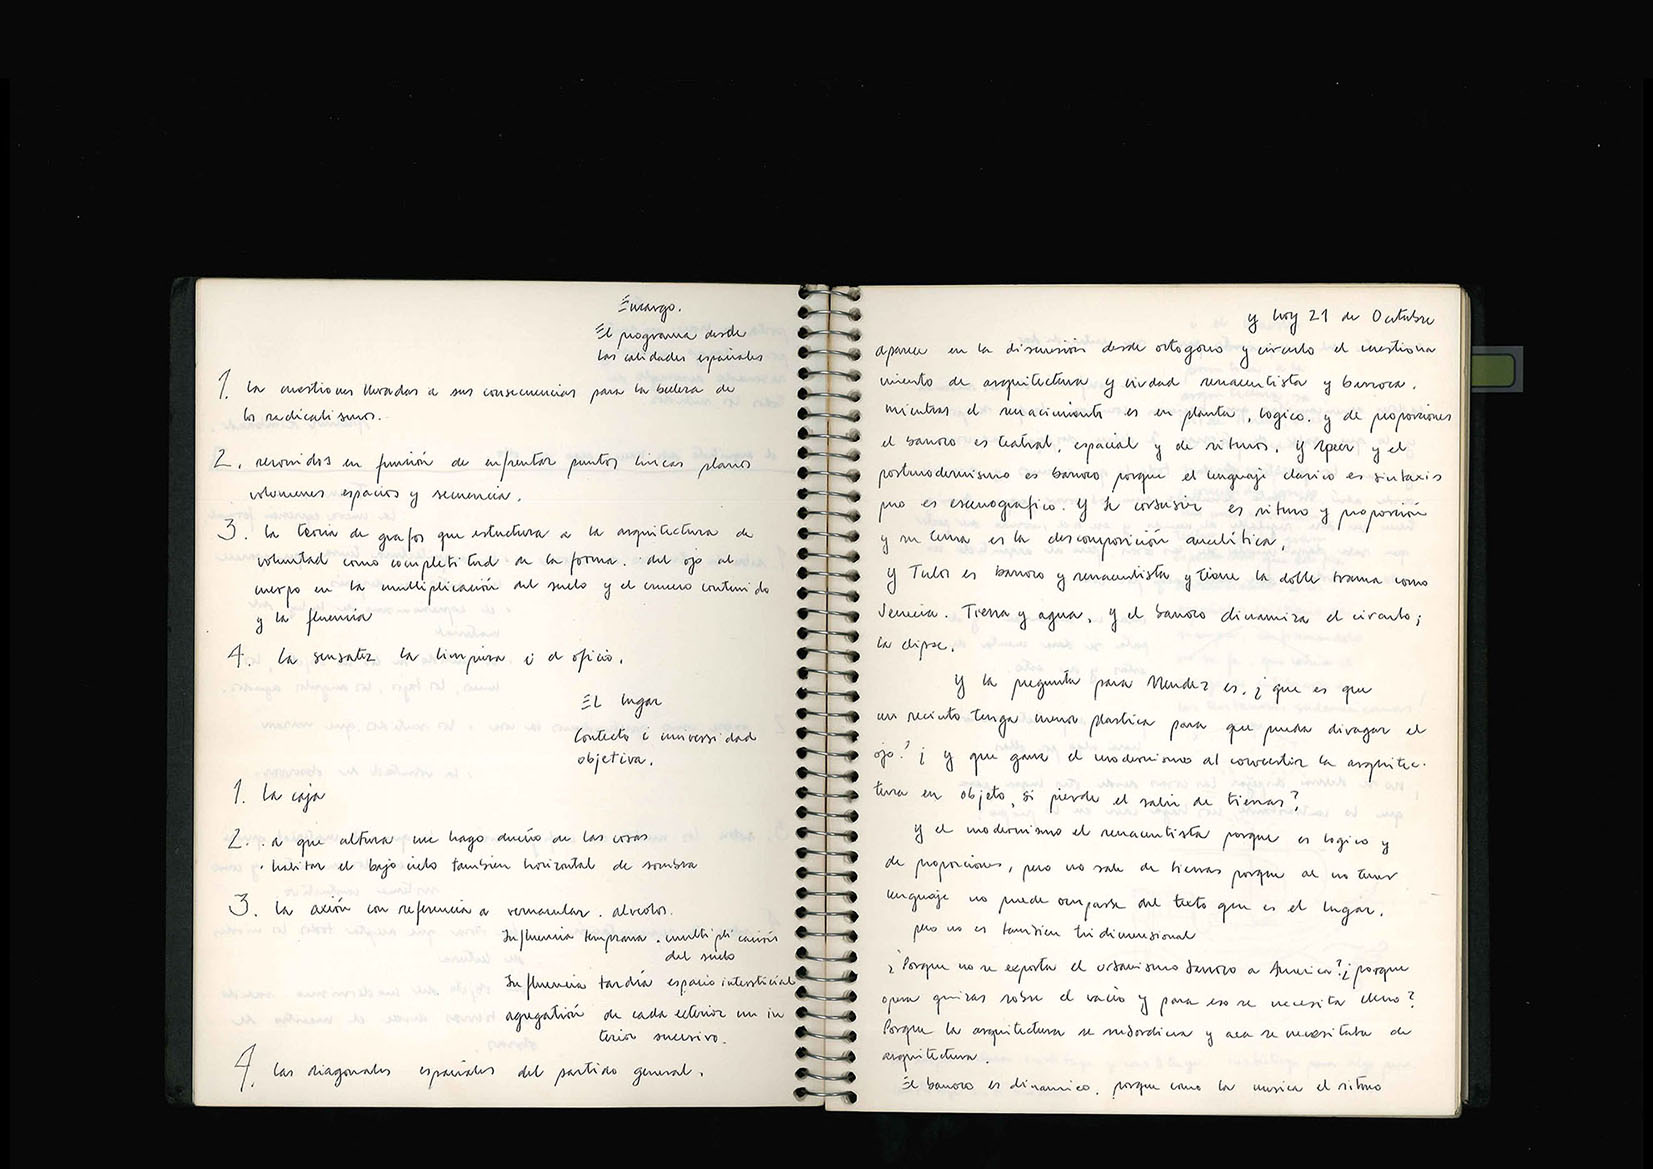 Encargo.
El programa desde
las calidades espaciales
1. la cuestiones llevadas a sus consecuencias para la belleza de
los radicalismos.
2. recorridos en función de enfrentar puntos lineas planos
volumenes espacios y secuencia.
3. la teoria de grafos que estructura a la arquitectura de
voluntad como completitud de la forma. del ojo al
cuerpo en la multiplicación del suelo y el cruceo contenido
y la fluencia
4. la sensatez la limpieza i el oficio.
EL lugar
Contecto i universidad
objetiva.
1. la caja
2. . a que altura me hago dueño de las cosas
. habitar el bajo cielo tambien horizontal de sombra
3. la axión con referencia a vernacular. alveolos.
Influencia temprana . multiplicación
del suelo
Influencia tardía espacio intersticial
agregatión de cada exterior un in
terior sucesivo.
4. las diagonales espaciales del partido general.
y hoy 21 de Octubre
aparece en la discusión desde octogono y circulo el cuestiona
miento de arquitectura y ciudad renacentista y barroca.
mientras el renacimiento es en planta, logico. y de proporciones
el barroco es teatral, espacial y de ritmos. y Speer y el
postmodernismo es barroco porque el lenguaje clasico es sintaxis
pero es escenografico. y le corbusier es ritmo y proporción
y su tema es la descomposición analítica.
y Tulor es barroco y renacentista y tiene la doble trama como
Venecia. Tierra y agua. y el barroco dinamiza el circulo;
la elipse.
y la pregunta para Mendez es. ¿que es que
un recinto tenga menor plastica para que pueda divagar el
ojo? ¿ y que gana el modernismo al convertir la arquitec-
tura en objeto, si pierde el salir de tierras?
y el modernismo el renacentista porque es logico y
de proporciones, pero no sale de tierras porque al no tener
lenguaje no puede ocuparse del texto que es el lugar.
pero no es tambien tridimensional
¿Porque no se exporta el urbanismo barroco a America? ¿porque
opera quizas sobre el vacio y para eso se necesita lleno?
Porque la arquitectura se subordina y aca se necesitaba de
arquitectura.
El barroco es dinamico. porque como la musica el ritmo